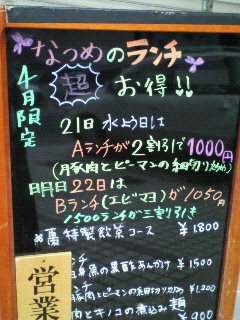 なつめのランチ
4月限定
超
お得!!
21日 水よう日は
Aランチが2割引で1000円
(豚肉とピーマンの細切り炒め)
明日22日は
Bランチ(エビマヨ)が1050円
1500ランチが三割引き
特製飲茶コース ¥1800
ンチ
身魚の黒酢あんかけ ¥1500
ンチ
豚肉とピーマンの細切り炒め ¥1,200
肉とキノコの煮込み麺
¥900
営業